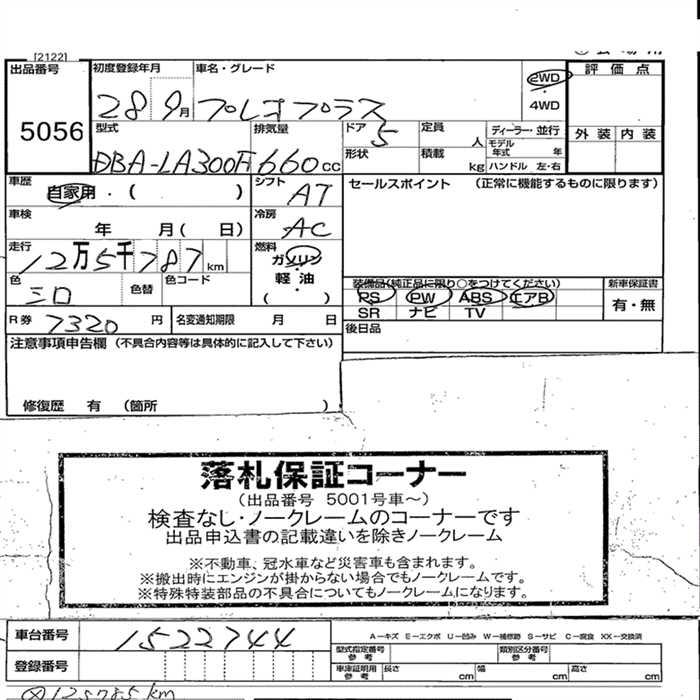 [2122]
出品番号 5056
初度登録年月 28 9月
車名・グレード プレオプラス
2WD
4WD
評価点
外装 内装
型式 DBA-LA300F
排気量 660cc
ドア 5
形状
定員 人
積載 kg
ディーラー・並行
モデル年式 年
ハンドル 左・右
車歴 自家用・( )
シフト AT
車検 年 月( 日)
冷房 AC
走行 12万5千787km
燃料 ガソリン
軽・油
( )
色 シロ
色替
色コード
R券 7320円
名変通知期限 月 日
セールスポイント (正常に機能するものに限ります)
装備品(純正品に限り○をつけてください)
PS PW ABS エアB
SR ナビ TV
新車保証書
有・無
後日品
注意事項申告欄 (不具合内容等は具体的に記入して下さい)
修復歴 有 (箇所 )
落札保証コーナー
(出品番号 5001号車~)
検査なし・ノークレームのコーナーです
出品申込書の記載違いを除きノークレーム
※不動車、冠水車など災害車も含まれます。
※搬出時にエンジンが掛からない場合でもノークレームです。
※特殊特装部品の不具合についてもノークレームになります。
車台番号 1522744
A-キズ E-エクボ U-凹み W-補修跡 S-サビ C-腐食 XX-交換済
登録番号
型式指定番号 参考
類別区分番号 参考
車庫証明用 参考
長さ cm
幅 cm
高さ cm
125785km